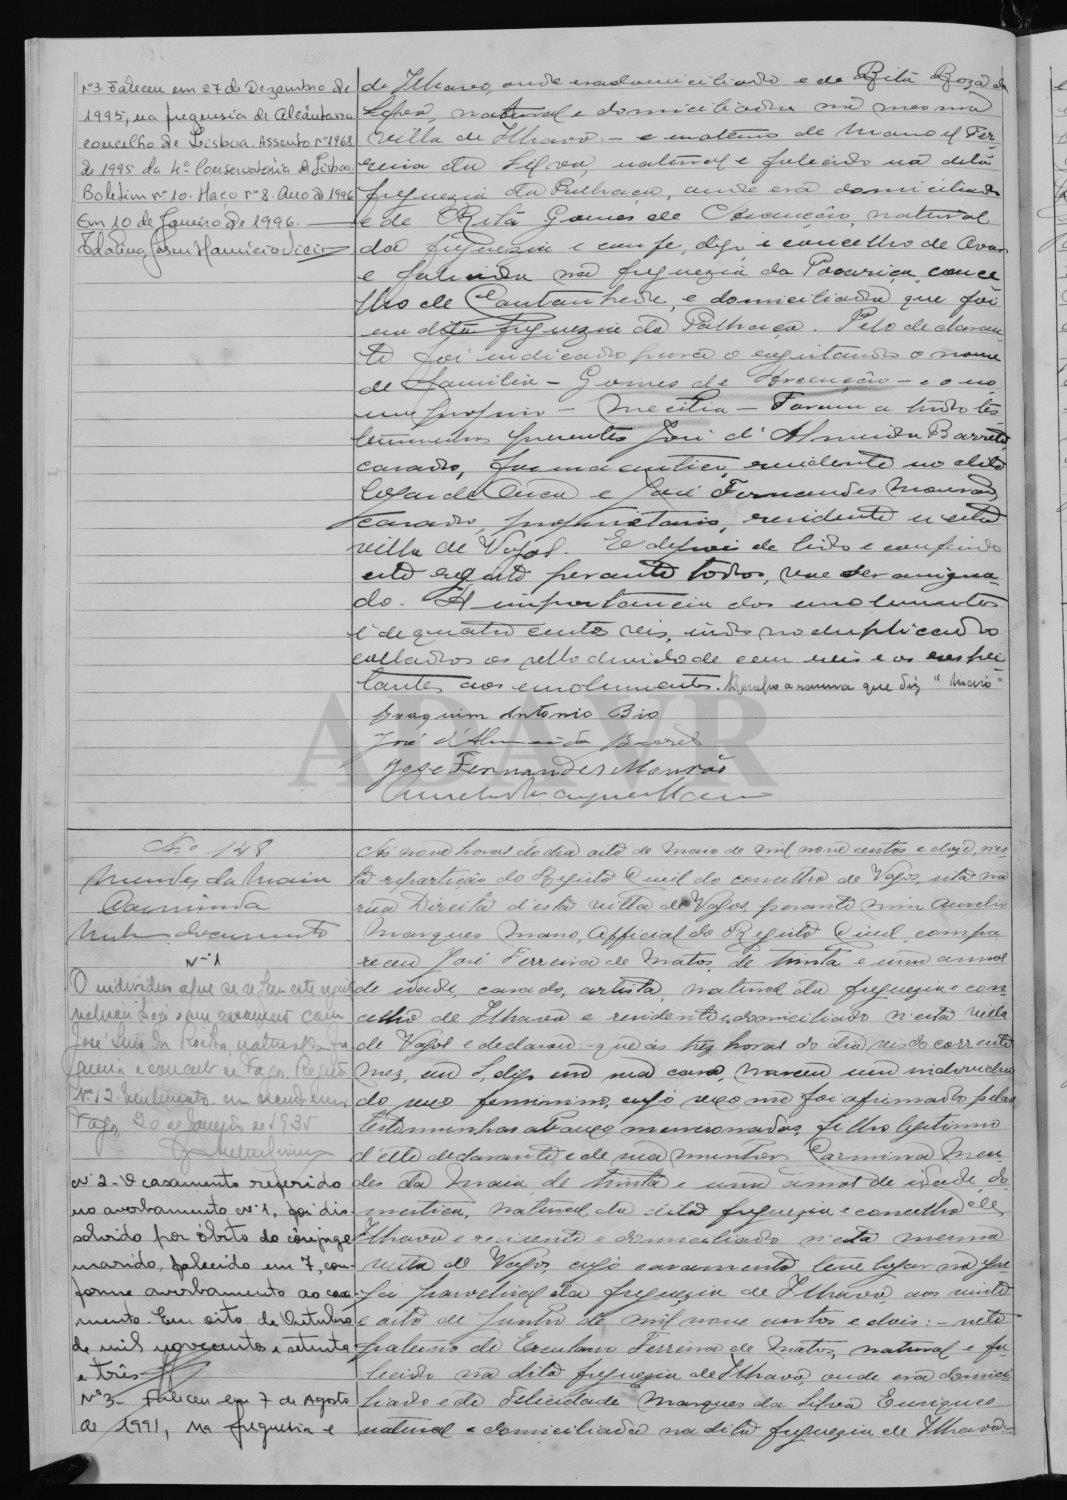 Nº3. Faleceu em 27 de Dezembro de
1995, na freguesia de Alcântara
concelho de Lisboa. Assento nº 1968
de 1995 da 4ª Conservatória de Lisboa.
Boletim nº 10. Maço nº 8. Ano de 1996
Em 10 de Janeiro de 1996.
de Ilhavo, onde era domiciliado e de Rita Roza da
Silva, natural e domiciliada na mesma
villa de Ilhavo. — e materno de Manoel Fer-
reira da Silva, natural e falecido na dita
freguezia da Palhaça, onde era domiciliado
e de Rita Gomes de Ascenção, natural
da freguezia e confe, digo, e concelho de Ovar
e falecida na freguezia da Pocariça, conce-
lho de Cantanhede, e domiciliada que foi
em dita freguezia da Palhaça. Pelo declaran-
te foi indicado para o registando o nome
de familia — Gomes de Ascenção — e o no-
me proprio — Mecilia — Foram a tudo tes-
temunhas presentes José d'Almeida Barreto,
casado, farmaceutico, residente no dito
logar de Ouca e José Fernandes Mourão,
casado, proprietario, residente n'esta
villa de Vagos. E depois de lido e conferido
este registo perante todos, vae ser assigna-
do. A importancia dos emolumentos
é de quatro centos reis, indo no duplicado
collados os sello devido de cem reis e os respei-
tantes aos emolumentos. Resalvo a rasura que diz "Maio"
Joaquim Antonio Bio
José d'Almeida Barreto
José Fernandes Mourão
ADAVR
Nº 148
Mendes da Maia
Carminda
Nº 1
O individuo a que se refere este registo
José Luis da Rocha, natural da fre-
guesia e concelho de Vagos. Registo
Nº 12.
Vagos, 20 de Janeiro de 1935
Nº 2 - O casamento referido
no averbamento nº 1, foi dis-
solvido por óbito do cônjuge
marido, falecido em 7, con-
forme averbamento ao casa-
mento. Em oito de Outubro
de mil novecentos e setenta
e três.
Nº 3 - Faleceu em 7 de Agosto
de 1991, na freguesia e
Ás nove horas do dia oito de Maio de mil nove centos e doze, nes-
ta repartição do Registo Civil do concelho de Vagos, sita na
rua Direita d'esta villa de Vagos, perante mim Aurelio
Marques Mano, Official do Registo Civil, compa-
receu José Ferreira de Matos, de trinta e um annos
de idade, casado, artista, natural da freguezia e con-
celho de Ilhavo e residente e domiciliado n'esta villa
de Vagos e declarou: — que ás trez horas do dia seis do corrente
mez, em s, digo em sua casa, nasceu um individuo
do sexo feminino, cujo sexo me foi afirmado pelas
testemunhas abaixo mencionadas, filho legitimo
d'elle declarante e de sua mulher Carminda Men-
des da Maia de trinta e um annos de idade, do-
mestica, natural da dita freguezia e concelho de
Ilhavo e residente e domiciliada n'esta mesma
villa de Vagos, cujo casamento teve logar na gre-
ja parochial da freguezia de Ilhavo, aos vinte
e oito de Junho de mil nove centos e dois: — neto
paterno de Erculano Ferreira de Matos, natural e fa-
lecido na dita freguezia de Ilhavo onde era domici-
liado e de Felicidade Marques da Silva Euriques
natural e domiciliada na dita freguezia de Ilhavo: —